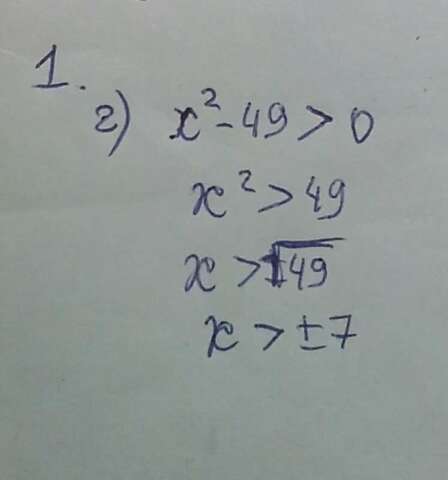 1.
г) x² - 49 > 0
x² > 49
x > ±√49
x > ±7